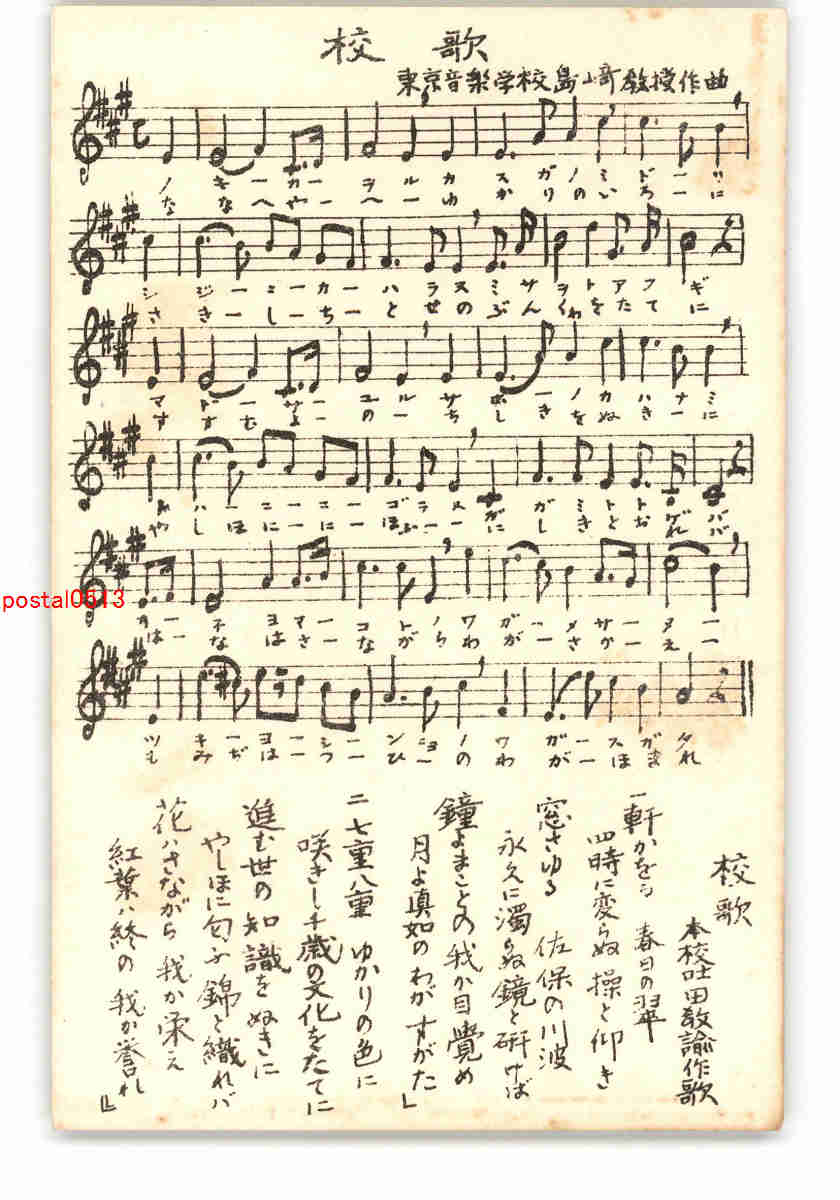 校歌
東京音楽学校島崎教授作曲
ノキーカーヲルカスガノミドーリ
ななへやーへーゆかりのいろーに
シジーニーカーハラヌミサヲトアフギ
さきーしーちーとせのぶんくわをたてに
マドーサーユルサホーノカハナミ
すすむよーのーちしきをぬきーに
やしほにーにーほふーにしきとおれバ
はーなはさーながらわがーさかーえー
ツキーヨーシンニョノワガースガタ
もみーぢはーつひーのわがーほまれ
校歌
本校吐田教諭作歌
一軒かをる 春日の翠
四時に変らぬ操と仰き
窓さゆる 佐保の川波
永久に濁らぬ鏡と研げば
鐘よまことの我か目覚め
月よ真如のわがすがた」
二七重八重 ゆかりの色に
咲きし千歳の文化をたてに
進む世の知識をぬきに
やしほに匂ふ錦と織れバ
花ハさながら我か栄え
紅葉ハ終の我か誉れ』
postal0513